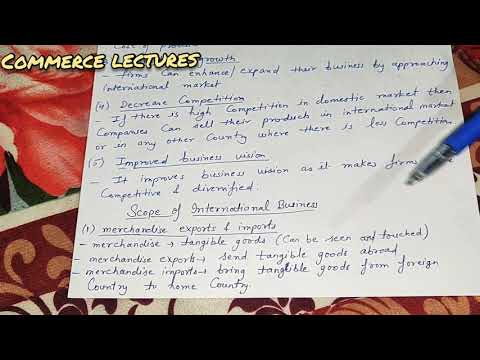 Cost of produ
COMMERCE LECTURES
growth
- firms can enhance/expand their business by approaching
international market
(4) Decrease Competition
- If there is high Competition in domestic market then
Companies can sell their products in international market
or in any other Country where there is less Competition
(5) Improved business vision
- It improves business vision as it makes firms
Competitive & diversified.
Scope of International Business
(1) merchandise exports & imports
- merchandise → tangible goods (Can be seen and touched)
merchandise exports → send tangible goods abroad
- merchandise imports → bring tangible goods from foreign
Country to home Country.